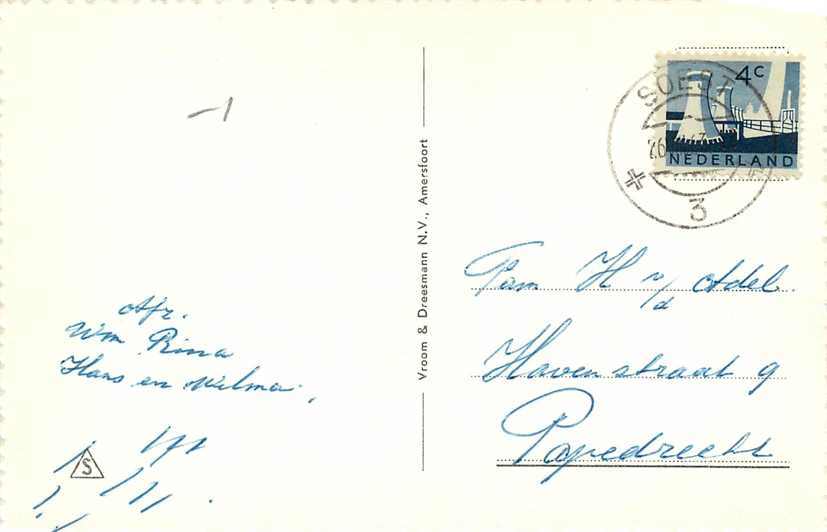 Afz.
Wim Rina
Hans en Wilma.
S
Vroom & Dreesmann N.V., Amersfoort
4 C
NEDERLAND
SOEST
3
Fam H v/d Adel.
Havenstraat 9
Papedrecht